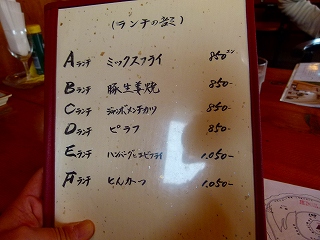 (ランチの部)
Aランチ ミックスフライ 850エン
Bランチ 豚生姜焼 850-
Cランチ ジャンボメンチカツ 850-
Dランチ ピラフ 850-
Eランチ ハンバーグとエビフライ 1.050-
Fランチ とんかつ 1.050-